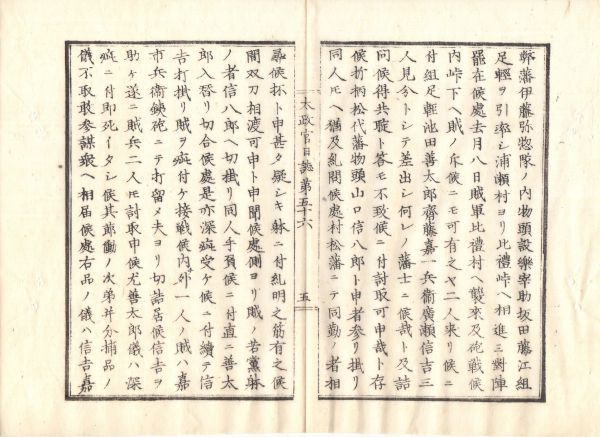 弊藩伊藤弥惣隊ノ内物頭設樂宰助坂田藤江組
足輕ヲ引率シ浦瀬村ヨリ比禮峠ヘ相進ミ對陣
罷在候處去月八日賊軍比禮村ヘ襲來及砲戰候
内峠下ヘ賊ノ斥候ニモ可有之ヤ二人来リ候ニ
付組足輕池田善太郎齋藤嘉一兵衛廣瀬信吉三
人見分トシテ差出シ何レノ藩士ニ候哉ト及詰
問候得共聢ト答モ不致候ニ付討取可申哉ト存
候折柄松代藩物頭山口信八郎ト申者参リ掛リ
同人モヘ猶及糺問候處村松藩ニテ同勤ノ者相
太政官日誌第五十六
五
尋候抔ト申甚タ疑シキ躰ニ付糺明之筋有之候
間双刀相渡可申ト申聞候處側ヨリ賊ノ若黨躰
ノ者信八郎ヘ切掛リ同人手負候ニ付直ニ善太
郎入替リ切合候處是亦深痴受ケ候ニ付續テ信
吉打掛リ賊ヲ痴付ケ接戰候内外一人ノ賊ハ嘉
市兵衛銕砲ニテ打留メ夫ヨリ切詰居候信吉ヲ
助ケ遂ニ賊兵二人モ討取申候尤善太郎儀ハ深
痴ニ付即死イタシ候其節働ノ次第并分捕品ノ
儀不取敢参謀衆ヘ相届候處右品ノ儀ハ信吉嘉